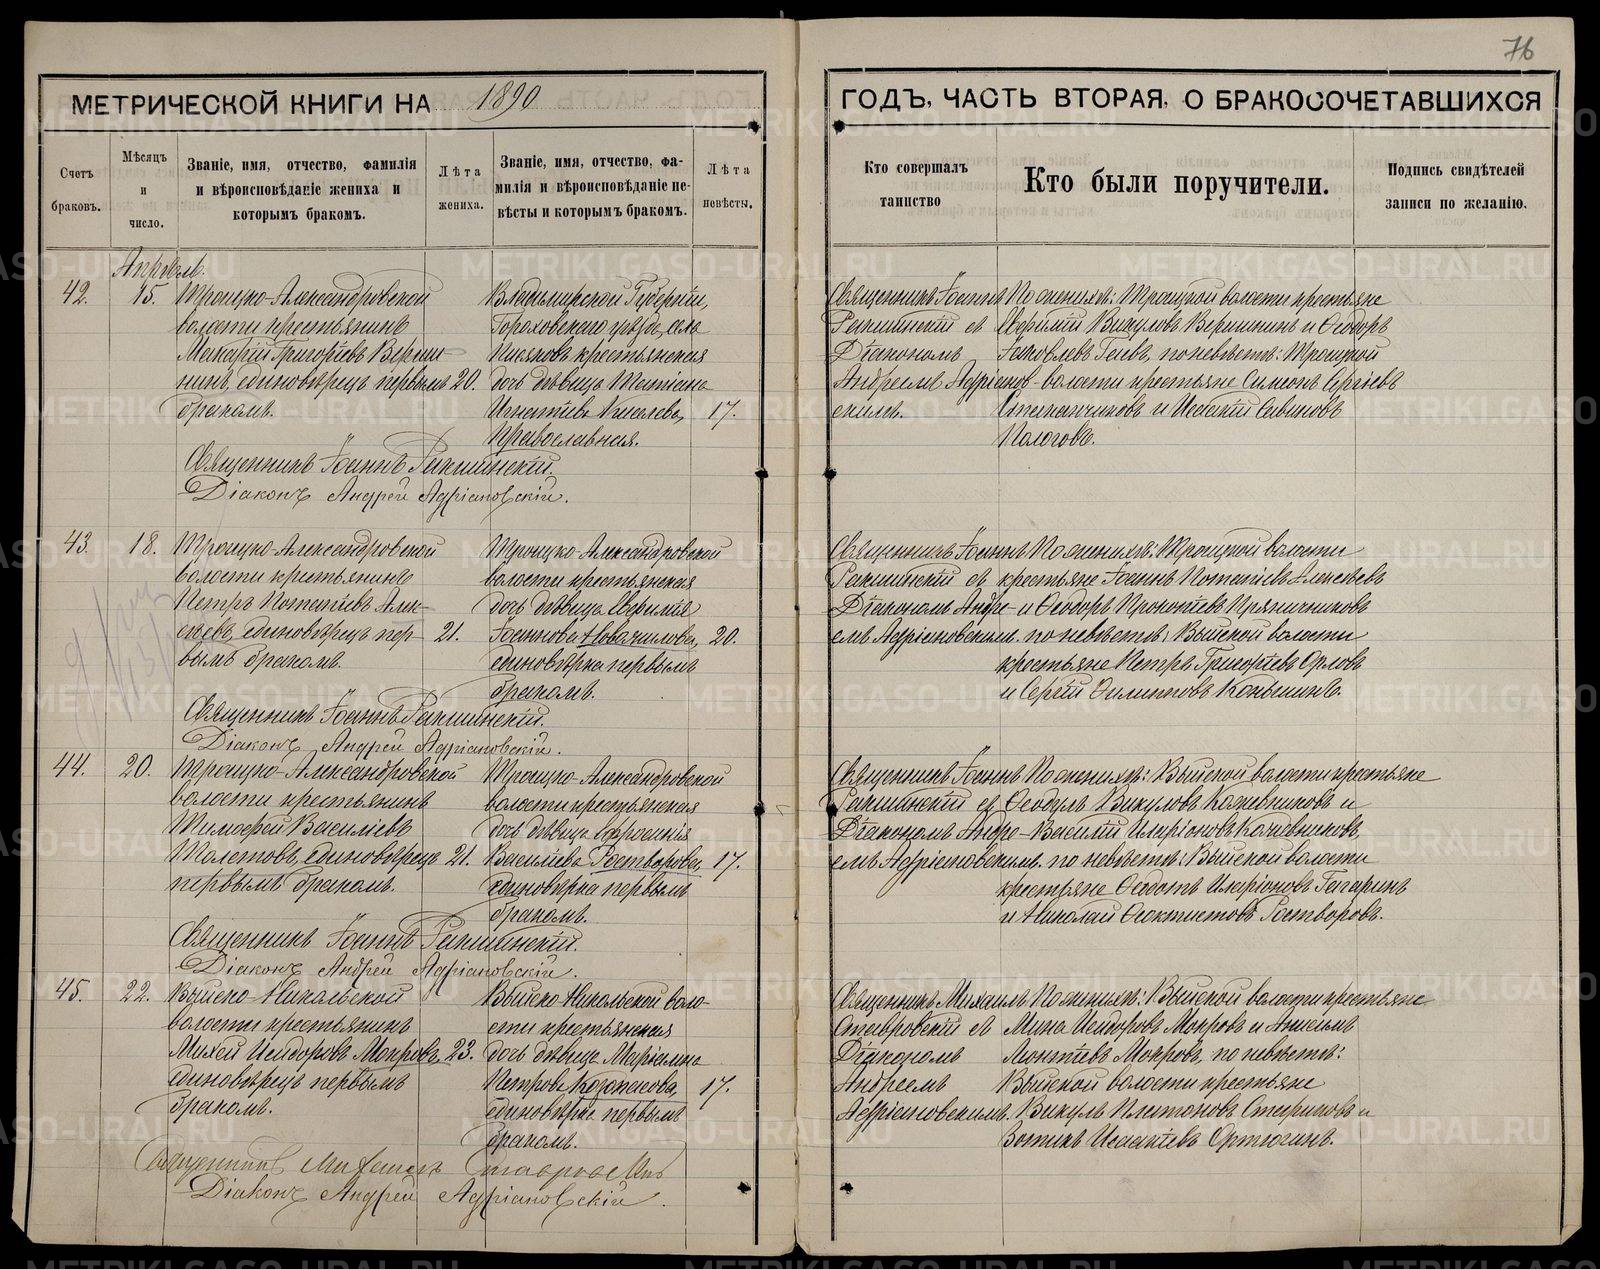 76
МЕТРИЧЕСКОЙ КНИГИ НА 1890
ГОДЪ, ЧАСТЬ ВТОРАЯ, О БРАКОСОЧЕТАВШИХСЯ
Счетъ браковъ.
Мѣсяцъ и число.
Званіе, имя, отчество, фамилія
и вѣроисповѣданіе жениха и
которымъ бракомъ.
Лѣта жениха.
Званіе, имя, отчество, фа-
милія и вѣроисповѣданіе не-
вѣсты и которымъ бракомъ.
Лѣта невѣсты.
Кто совершалъ
таинство
Кто были поручители.
Подпись свидѣтелей
записи по желанію.
Апрѣль.
42. 15.
Троицко-Александровской
волости крестьянинъ
Макарій Григоріевъ Верши-
нинъ, единовѣрецъ первымъ 20.
бракомъ.
Владимірской Губерніи,
Гороховскаго уѣзда, села
крестьянская
дочь дѣвица Татіана
Игнатіева Киселева, 17.
православная.
Священникъ Іоаннъ
Ракшинскій съ
Діакономъ
Андреемъ Адріанов-
скимъ.
По женихѣ: Троицкой волости крестьяне
Евфимій Викуловъ Вершининъ и Ѳеодоръ
Іаковлевъ Гневъ, по невѣстѣ: Троицкой
волости крестьяне Симеонъ Сергіевъ
Степанчиковъ и Исакій Саввиновъ
Пологовъ.
Священникъ Іоаннъ Ракшинскій.
Діаконъ Андрей Адріановскій.
43. 18.
Троицко-Александровской
волости крестьянинъ
Петръ Потапіевъ Алек-
сѣевъ, единовѣрецъ пер- 21.
вымъ бракомъ.
Троицко-Александровской
волости крестьянская
дочь дѣвица
Іоаннова Новачилова, 20.
единовѣрка первымъ
бракомъ.
Священникъ Іоаннъ
Ракшинскій съ
Діакономъ Андре-
емъ Адріановскимъ.
По женихѣ: Троицкой волости
крестьяне Іоаннъ Потапіевъ Алексѣевъ
и Ѳеодоръ Прокопіевъ Пряничниковъ
по невѣстѣ: Выйской волости
крестьяне Петръ Григоріевъ Орловъ
и Сергій Филипповъ Коньшинъ.
Священникъ Іоаннъ Ракшинскій.
Діаконъ Андрей Адріановскій.
44. 20.
Троицко-Александровской
волости крестьянинъ
Тимоѳей Василіевъ
Толстовъ, единовѣрецъ 21.
первымъ бракомъ.
Троицко-Александровской
волости крестьянская
дочь дѣвица
Василіева Растворова, 17.
единовѣрка первымъ
бракомъ.
Священникъ Іоаннъ
Ракшинскій съ
Діакономъ Андре-
емъ Адріановскимъ.
По женихѣ: Выйской волости крестьяне
Ѳеодулъ Викуловъ Кожевниковъ и
Василій Иларіоновъ Кожевниковъ,
по невѣстѣ: Выйской волости
крестьяне Ѳеодотъ Иларіоновъ Гагаринъ
и Николай Ѳеоктистовъ Растворовъ.
Священникъ Іоаннъ Ракшинскій.
Діаконъ Андрей Адріановскій.
45. 22.
Выйско-Никольской
волости крестьянинъ
Михей Исидоровъ Мокровъ, 23.
единовѣрецъ первымъ
бракомъ.
Выйско-Никольской воло-
сти крестьянская
дочь дѣвица Маріамна
Петрова Коротаева, 17.
единовѣрка первымъ
бракомъ.
Священникъ Михаилъ
Ставровскій съ
Діакономъ
Андреемъ
Адріановскимъ.
По женихѣ: Выйской волости крестьяне
Мина Исидоровъ Мокровъ и
Леонтіевъ Мокровъ, по невѣстѣ:
Выйской волости крестьяне
Викулъ Платоновъ Стариковъ и
Зотикъ Исаакіевъ Ортюгинъ.
Священникъ Михаилъ Ставровскій
Діаконъ Андрей Адріановскій.
METRIKI.GASO-URAL.RU